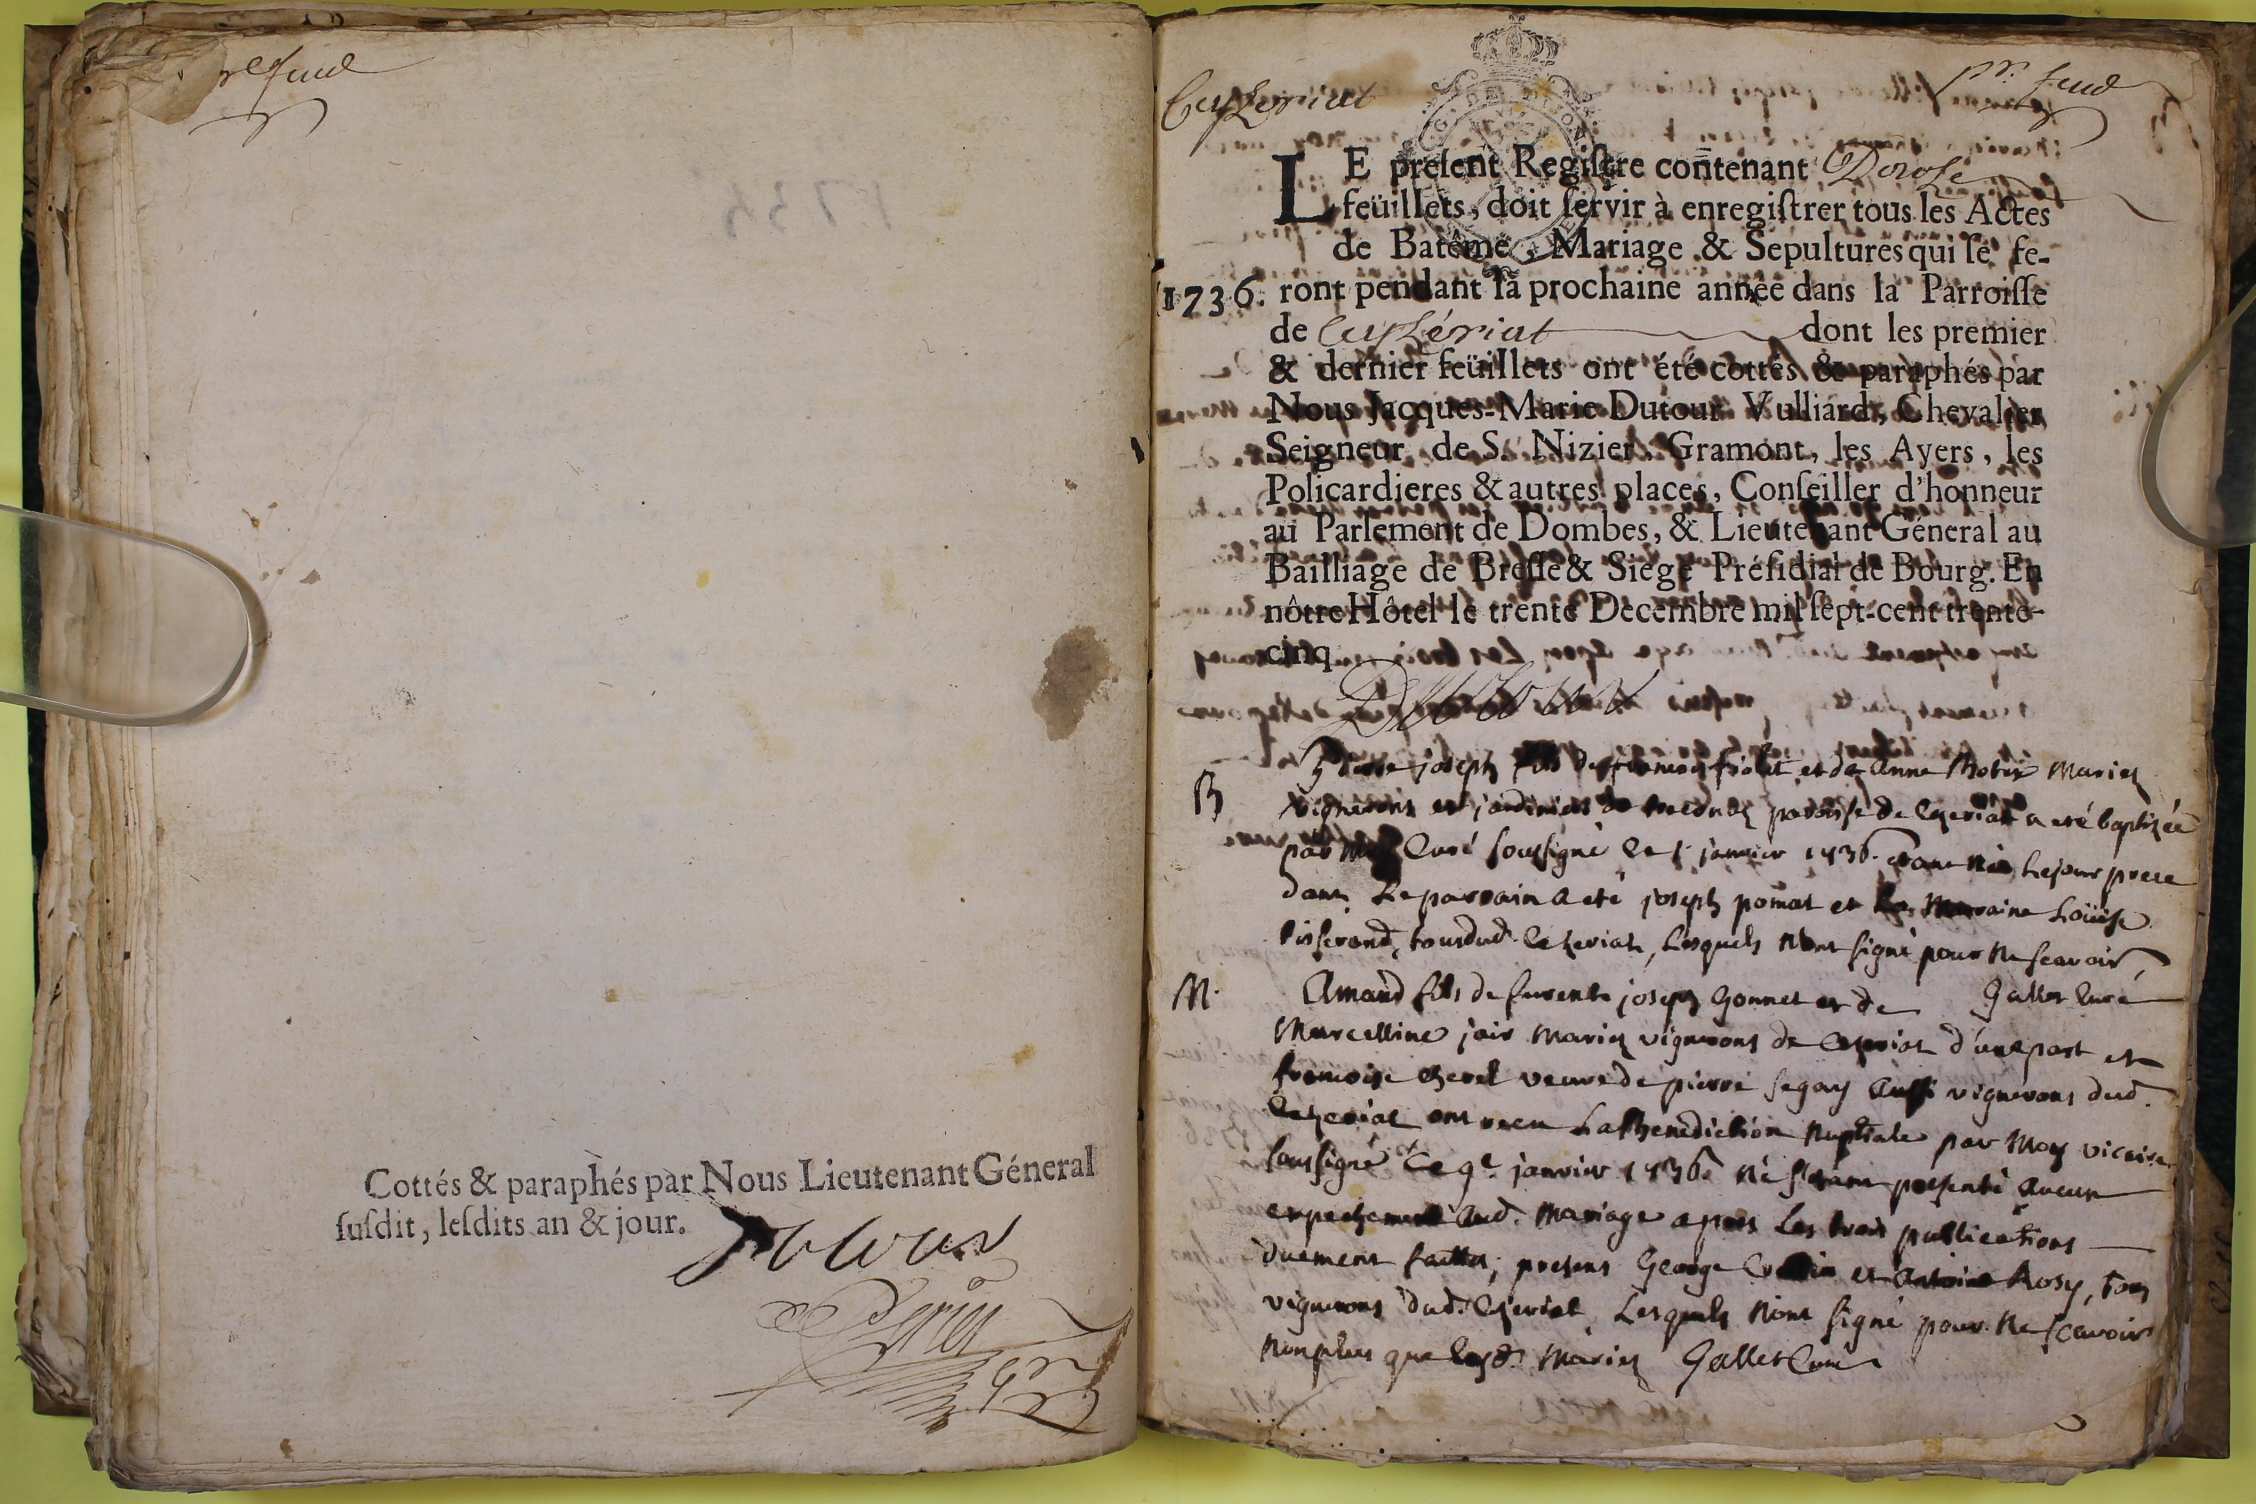 Cottés & paraphés par Nous Lieutenant Géneral
suſdit, leſdits an & jour.
Dutour
Ceyzeriat
LE preſent Regiſtre contenant Douze
feüillets, doit ſervir à enregiſtrer tous les Actes
de Batême, Mariage & Sepultures qui ſe fe-
1736. ront pendant la prochaine année dans la Parroiſſe
de Ceyzériat dont les premier
& dernier feüillets ont été cottés & paraphés par
Nous Jacques-Marie Dutour Vulliard, Chevalier
Seigneur de S. Nizier, Gramont, les Ayers, les
Policardieres & autres places, Conſeiller d'honneur
au Parlement de Dombes, & Lieutenant Géneral au
Bailliage de Breſſe & Siége Préſidial de Bourg. En
nôtre Hôtel le trente Decembre mil ſept-cent trente-
cinq
Dutour
B
joseph et de anne mariez
vignerons et paroisse de Ceyzeriat a eté baptizée
par Moy Curé soussigné le janvier 1736. le jour prece
dant. Le parrain a eté joseph pomat et la Marraine Loüise
tisserand, tous dud. Ceyzeriat, Lesquels N'ont signé pour Ne scavoir,
Gallet Curé
M.
Amand fils de joseph Gonnet et de
Marcelline mariez vignerons de Ceyzeriat d'une part et
francoise veuve de pierre segay aussi vignerons dud.
Ceyzeriat ont receu La Benediction Nuptiale par Moy vicaire
soussigné Ce 9e. janvier 1736. Ne s'etant presenté aucun
enpechement aud. Mariage apres Les trois publications
duement faittes, presens George et antoine Rosy, tous
vignerons dud. Ceyzeriat, Lesquels N'ont signé pour Ne scavoir
Non plus que Lesd. Mariez Gallet Curé